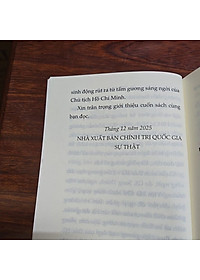 sinh động rút ra từ tấm gương sáng ngời của
Chủ tịch Hồ Chí Minh.
Xin trân trọng giới thiệu cuốn sách cùng
bạn đọc.
Tháng 12 năm 2025
NHÀ XUẤT BẢN CHÍNH TRỊ QUỐC GIA
SỰ THẬT